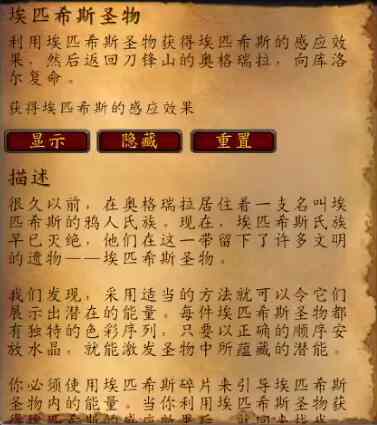 埃匹希斯圣物
利用埃匹希斯圣物获得埃匹希斯的感应效
果，然后返回刀锋山的奥格瑞拉，向库洛
尔复命。
获得埃匹希斯的感应效果
显示 隐藏 重置
描述
很久以前，在奥格瑞拉居住着一支名叫埃
匹希斯的鸦人氏族。现在，埃匹希斯氏族
早已灭绝，他们在这一带留下了许多文明
的遗物——埃匹希斯圣物。
我们发现，采用适当的方法就可以令它们
展示出潜在的能量。每件埃匹希斯圣物都
有独特的色彩序列，只要以正确的顺序安
放水晶，就能激发圣物中所蕴藏的潜能。
你必须使用埃匹希斯碎片来引导埃匹希斯
圣物内的能量。当你利用埃匹希斯圣物获